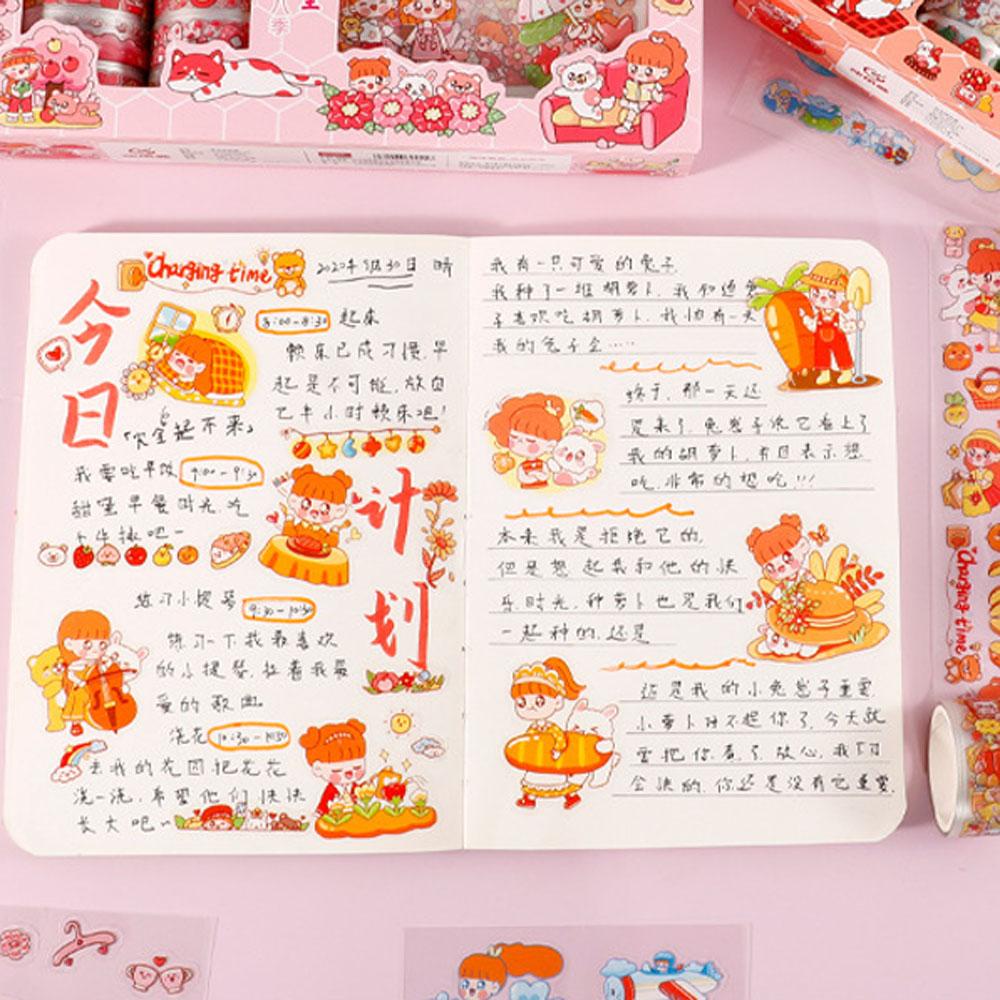 今日
计划
Charging time
2020年5月30日 晴
8:00-8:30 起床
赖床已成习惯,早
起是不可能,放自
己半小时赖床吧!
「完全起不来」
我要吃早饭 9:00-9:30
甜蜜早餐时光,吃
练习小提琴 9:30-10:30
练习一下我最喜欢
的小提琴,拉着我最
爱的歌曲
浇花 10:30-10:50
去我的花园把花花
浇一浇,希望他们快快
长大吧~
我有一只可爱的兔子,
我种了一堆胡萝卜,我知道兔
子喜欢吃胡萝卜,我怕有一天
我的兔子会……
终于,那一天还
是来了,兔崽子说它看上了
我的胡萝卜,有日表示想
吃,非常的想吃!!!
本来我是拒绝它的,
但是想起我和他的快
乐时光,种萝卜也是我们
一起种的,还是
还是我的小兔崽子重要
小萝卜对不起你了,今天就
要把你 了,放心,我下刀
会快的,你还是没有它重要,
Charging time